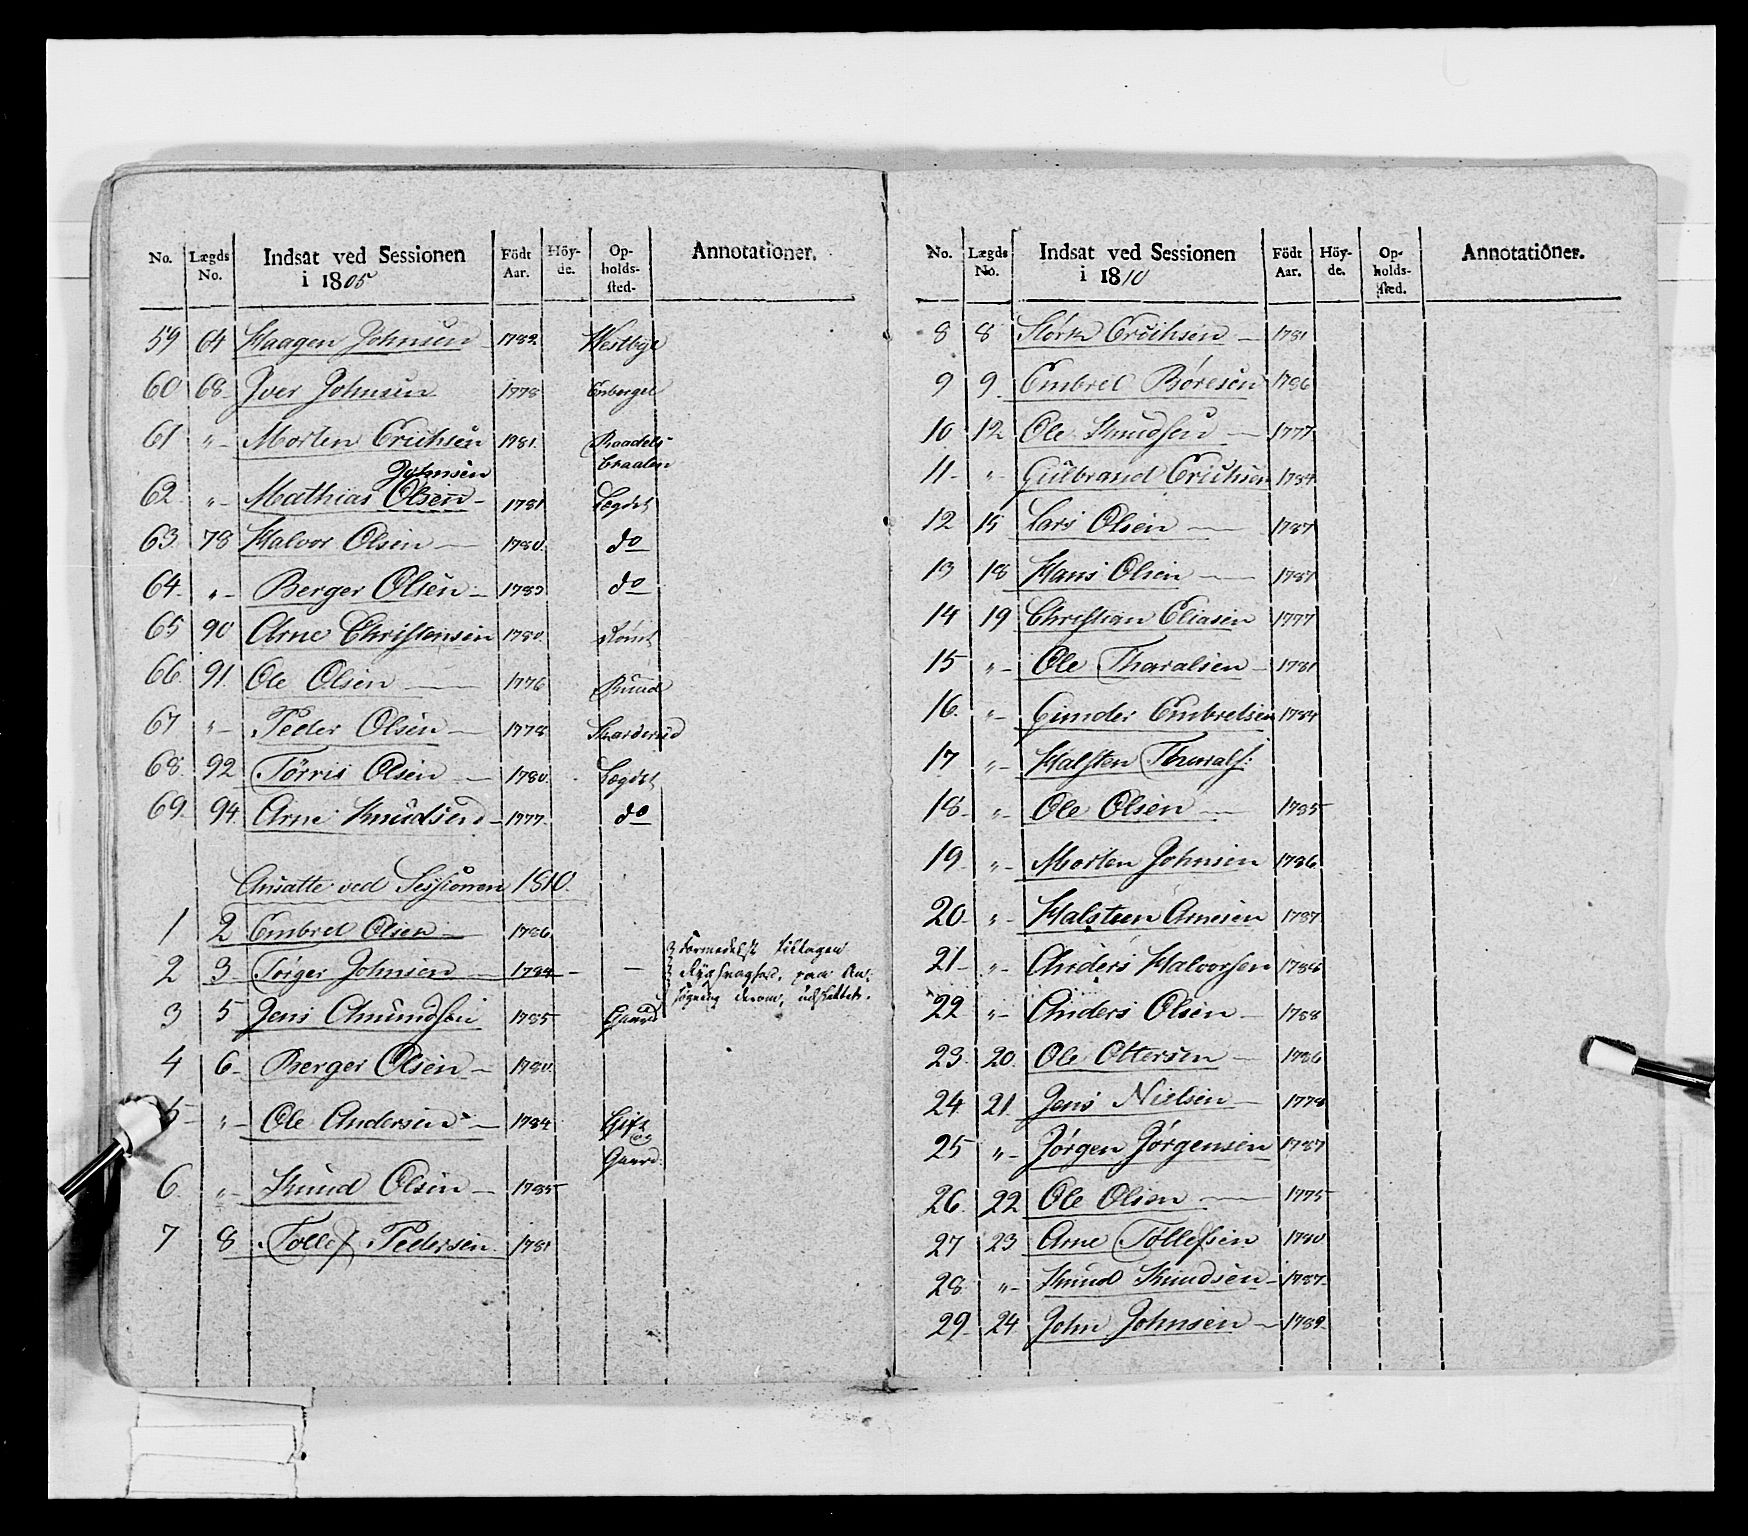 No. Lægds No. Indsat ved Sessionen i 1805 Födt Aar. Höy-de. Op-holds-sted. Annotationer.
59 64 Haagen Johnsen 1782 Westbye
60 68 Iver Johnsen 1778 Enberget
61 " Morten Erichsen 1781 Raadels-
braaten
Johnsen
62 " Mathias Olsen 1781 Lægdet
63 78 Halvor Olsen 1780 do
64 " Berger Olsen 1783 do
65 90 Arne Christensen 1780
66 91 Ole Olsen 1776 Ruud
67 " Peder Olsen 1778
68 92 Törris Olsen 1780 Lægdet
69 94 Arne Knudsen 1777 do
Ansatte ved Sessionen 1810
1 2 Embret Olsen 1786
2 3 Törger Johnsen 1784 — Formedelst tiltagen
Rygsvaghed, paa An-
søgning derom, udslettet.
3 5 Jens Amundsen 1785 Gaard
4 6 Berger Olsen 1780
5 " Ole Andersen 1784 Gift
og
Gaard
6 " Knud Olsen 1785
7 8 Tollef Pedersen 1781
No. Lægds No. Indsat ved Sessionen i 1810 Födt Aar. Höy-de. Op-holds-sted. Annotationer.
8 8 Störk Erichsen 1781
9 9 Embret Böresen 1786
10 12 Ole Knudsen 1777
11 " Gulbrand Erichsen 1784
12 15 Lars Olsen 1787
13 18 Hans Olsen 1787
14 19 Christian Eliasen 1777
15 " Ole Tharalsen 1781
16 " Gunder Embretsen 1784
17 " Halsten Tharals:
18 " Ole Olsen 1785
19 " Morten Johnsen 1786
20 " Halsteen Arnesen 1787
21 " Anders Halvorsen 1786
22 " Anders Olsen 1788
23 20 Ole Ottersen 1786
24 21 Jens Nielsen 1778
25 " Jörgen Jörgensen 1787
26 22 Ole Olsen 1775
27 23 Arne Tollefsen 1780
28 " Knud Knudsen 1787
29 24 John Johnsen 1782